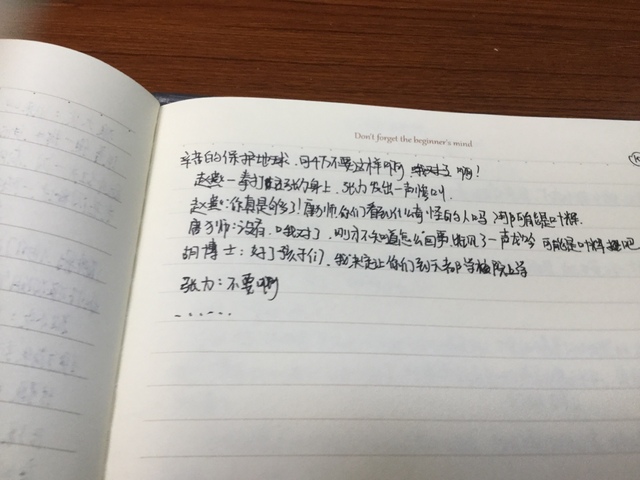 Don't forget the beginner's mind
辛苦的保护地球，可千万不要这样啊 啊！
赵燕一拳打在张力身上，张力发出一声惨叫
赵燕：你真是够了！唐力师你们看到什么奇怪的人吗
唐力师：没有，哦对了，刚才不知道怎么回事听见了一声龙吟 可能是叶辉 吧
胡博士：好了孩子们，我决定让你们到天都学院上学
张力：不要啊
. . . . . .